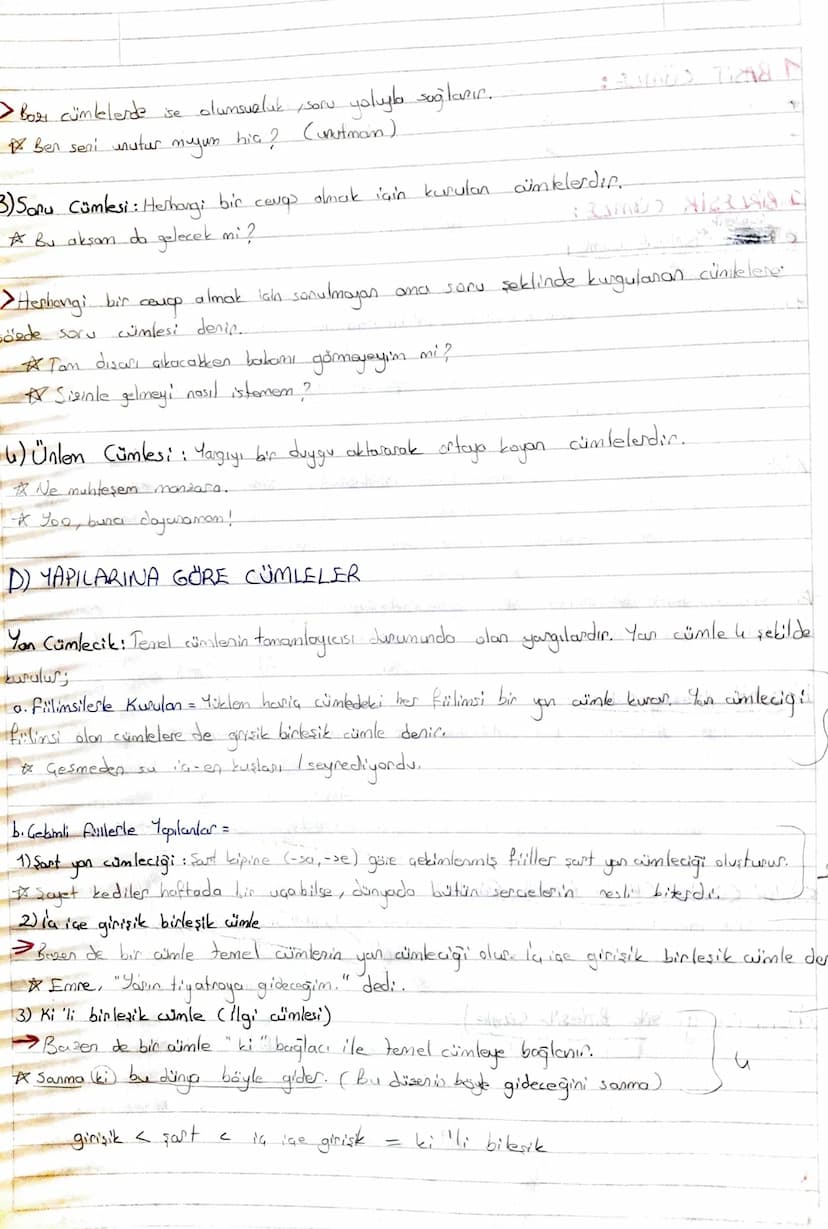 > Bazı cümlelerde ise olumsuzluk, soru yoluyla sağlanır.
☆ Ben seni unutur muyum hiç? (unutmam)
3) Soru Cümlesi: Herhangi bir cevap almak için kurulan cümlelerdir.
☆ Bu akşam da gelecek mi?
> Herhangi bir cevap almak için sorulmayan ama soru şeklinde kurgulanan cümlelere
sözde soru cümlesi denir.
☆ Tam dışarı çıkacakken babamı görmeyeyim mi?
☆ Sizinle gelmeyi nasıl istemem?
4) Ünlem Cümlesi: Yargıyı bir duygu aktararak ortaya koyan cümlelerdir.
☆ Ne muhteşem manzara.
☆ Yoo, buna dayanamam!
D) YAPILARINA GÖRE CÜMLELER
Yan Cümlecik: Temel cümlenin tamamlayıcısı durumunda olan yargılardır. Yan cümle 4 şekilde
kurulur;
a. Fiilimsilerle Kurulan = Yüklem hariç cümledeki her fiilimsi bir yan cümle kurar. Yan cümleciği
fiilimsi olan cümlelere de girişik birleşik cümle denir.
☆ Çeşmeden su içen kuşları / seyrediyordu.
b. Çekimli Fiillerle Yapılanlar =
1) Şart yan cümleciği: Şart kipine (-sa, -se) göre çekimlenmiş fiiller şart yan cümleciği oluşturur.
☆ Şayet kediler haftada bir uçabilse, dünyada bütün serçelerin nesli biterdi.
2) İç içe girişik birleşik cümle
→ Bazen de bir cümle temel cümlenin yan cümleciği olur. İç içe girişik birleşik cümle den
☆ Emre, "Yarın tiyatroya gideceğim." dedi.
3) Ki'li birleşik cümle (İlgi cümlesi)
→ Bazen de bir cümle "ki" bağlacı ile temel cümleye bağlanır.
☆ Sanma (ki) bu dünya böyle gider. (Bu düzenin böyle gideceğini sanma)
4
girişik < şart < iç içe girişk = ki'li bileşik